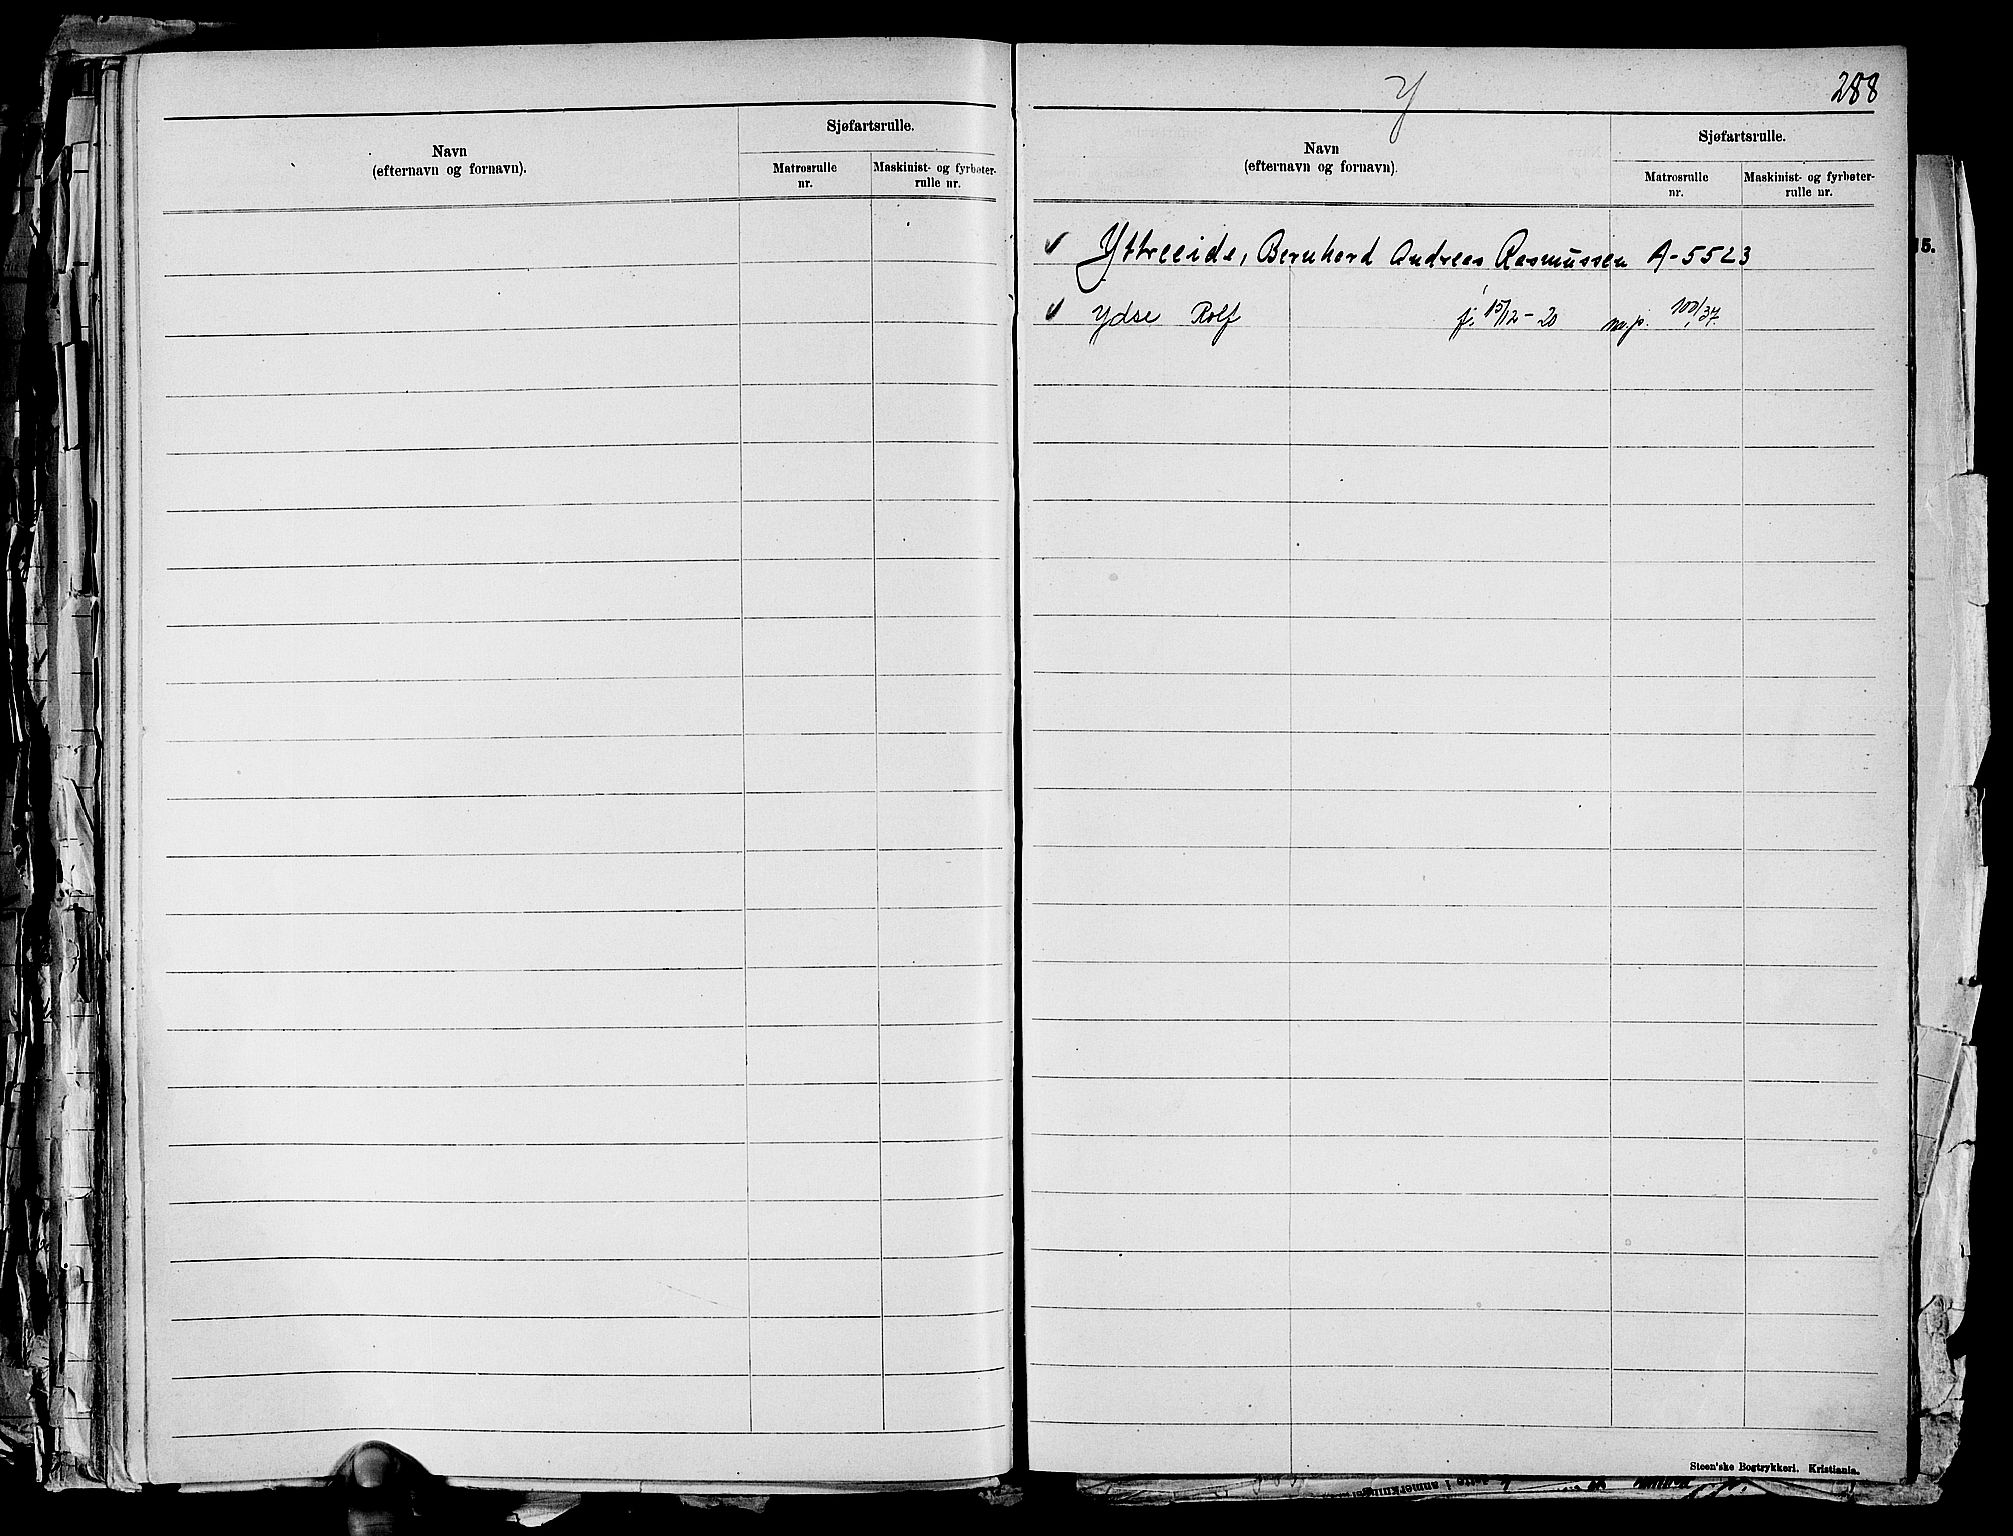 Navn
(efternavn og fornavn).
Sjøfartsrulle.
Matrosrulle nr.
Maskinist- og fyrbøter-rulle nr.
Y
288
Navn
(efternavn og fornavn).
Sjøfartsrulle.
Matrosrulle nr.
Maskinist- og fyrbøter-rulle nr.
Yttreeide, Bernhard Andreas Rasmussen A-5523
Ydse Rolf f. 15/12-20 m.p. 100/37.
Steen'ske Bogtrykkeri. Kristiania.
15.